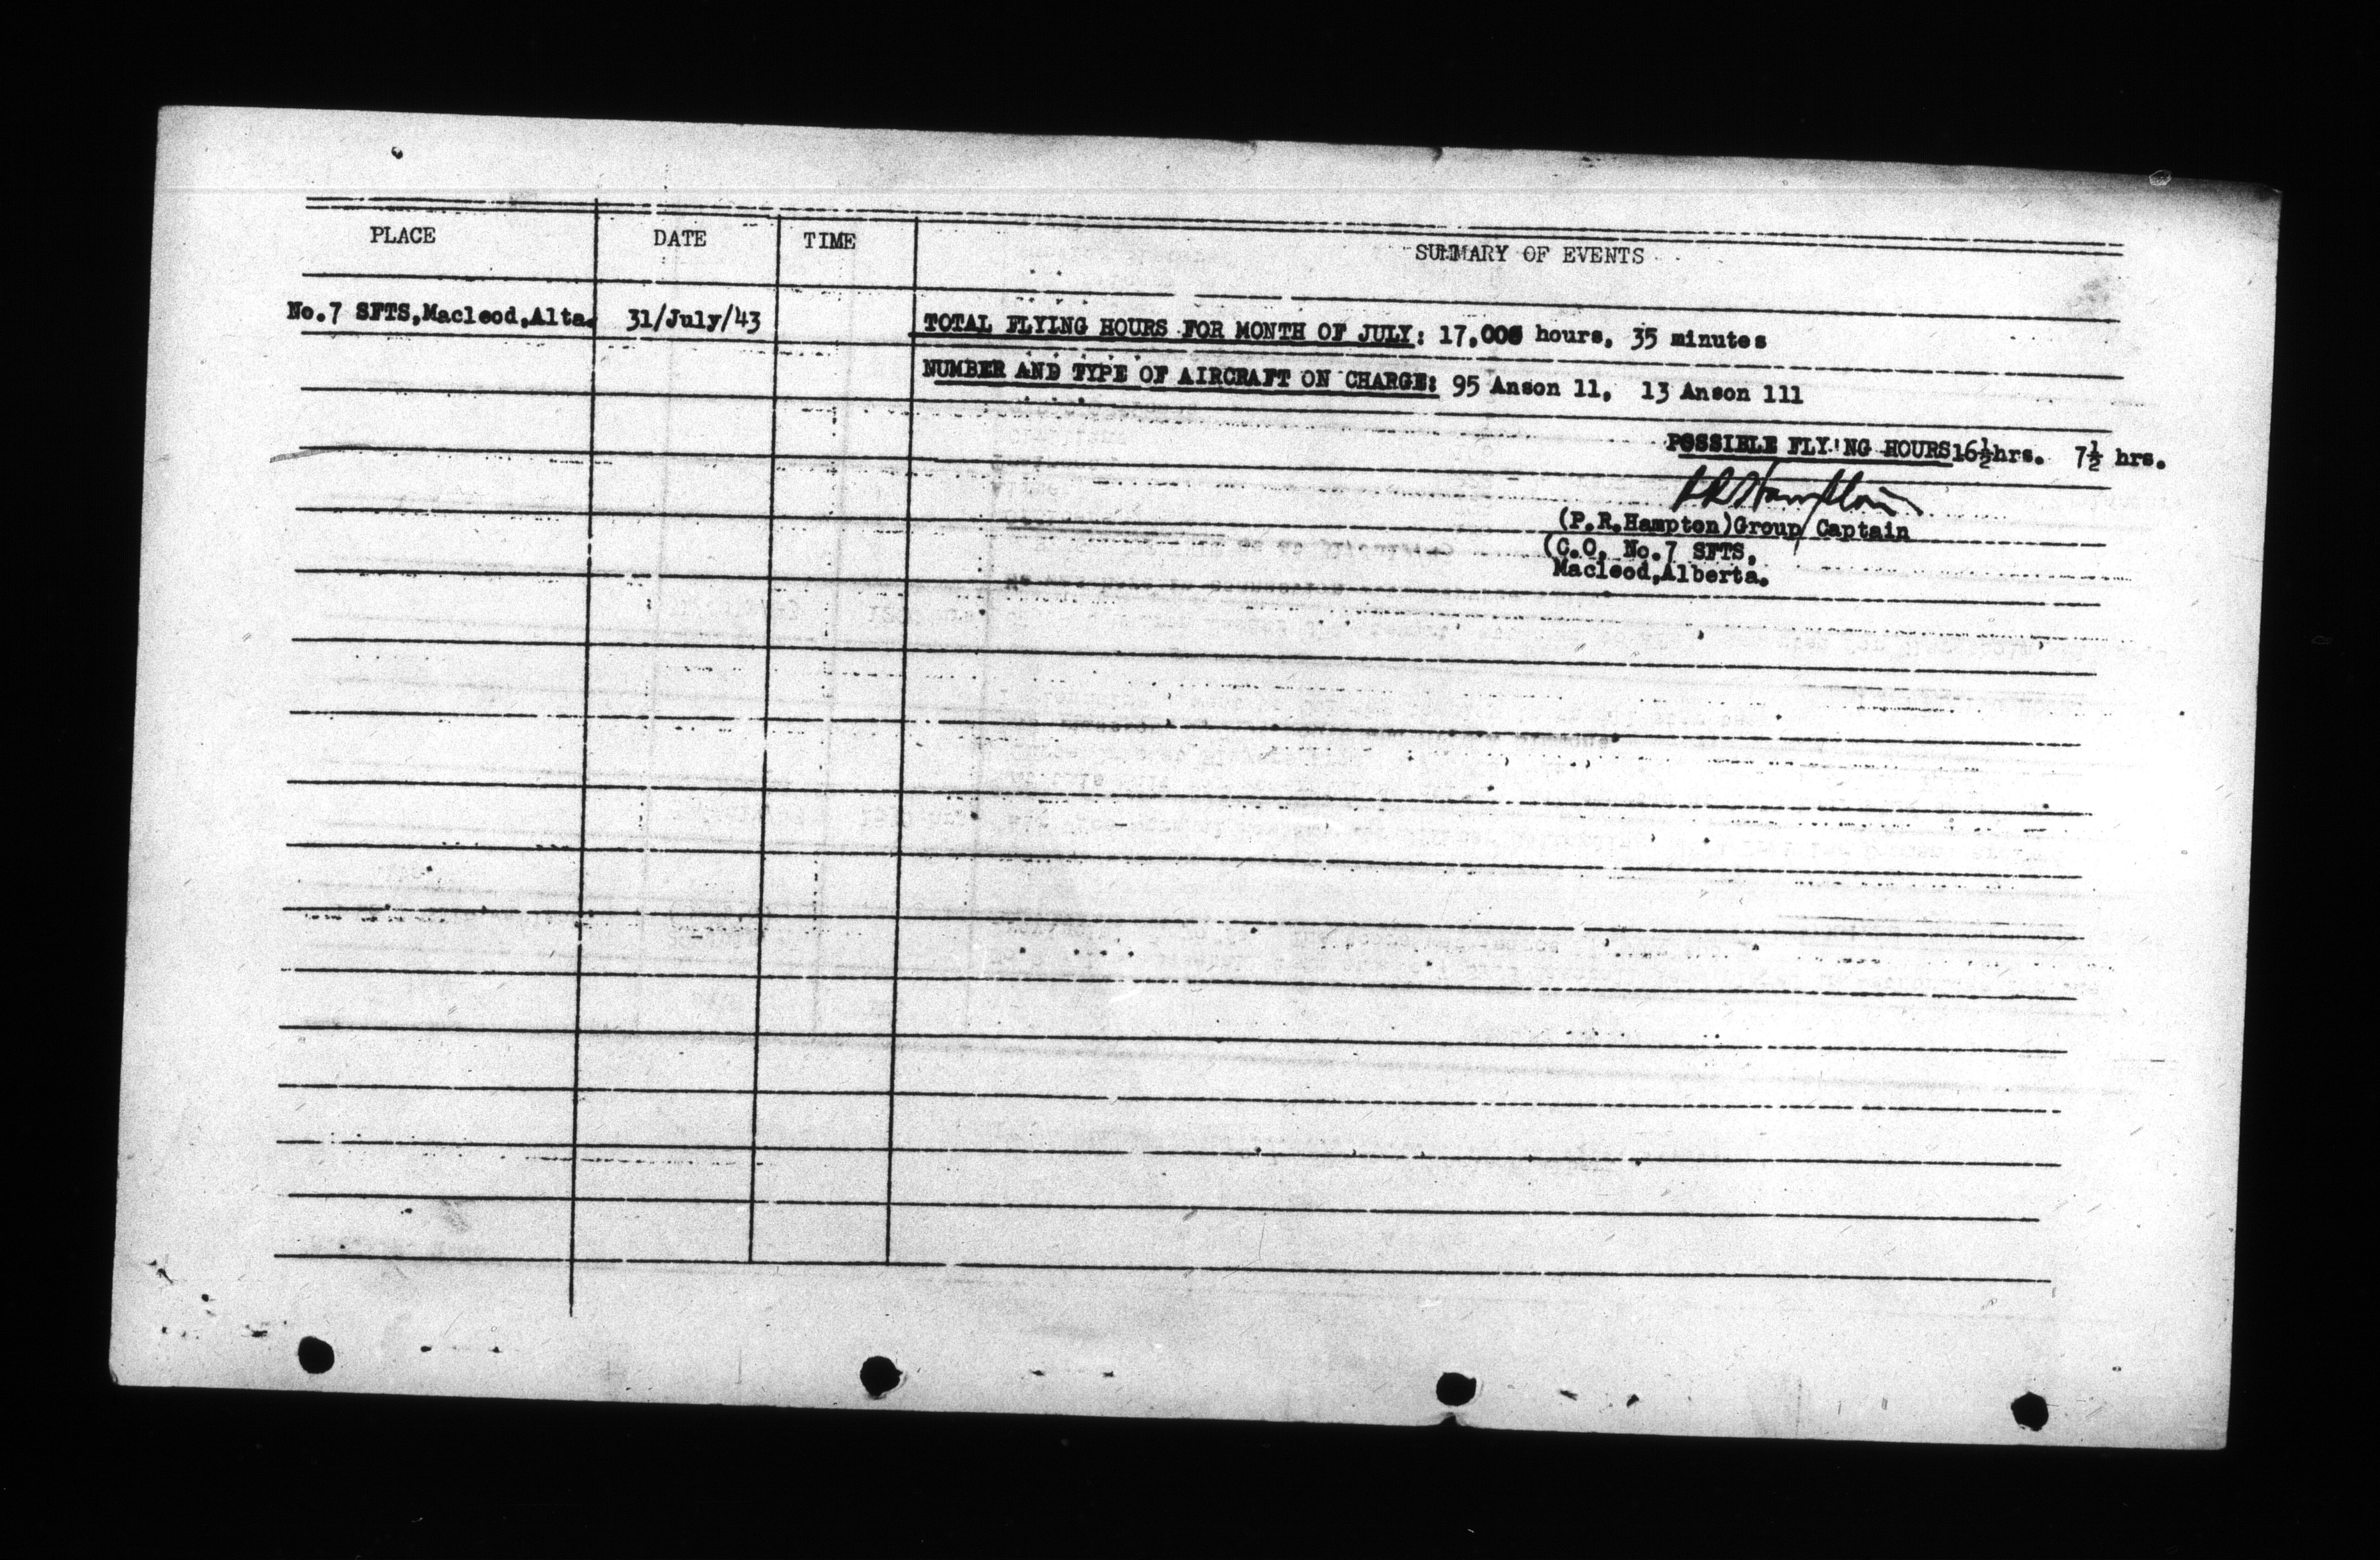 PLACE DATE TIME SUMMARY OF EVENTS
No.7 SFTS,Macleod,Alta. 31/July/43 TOTAL FLYING HOURS FOR MONTH OF JULY: 17,006 hours, 35 minutes
NUMBER AND TYPE OF AIRCRAFT ON CHARGE: 95 Anson 11, 13 Anson 111
POSSIBLE FLYING HOURS 16½hrs. 7½ hrs.
PR Hampton
(P.R.Hampton)Group Captain
(C.O. No.7 SFTS,
Macleod,Alberta.